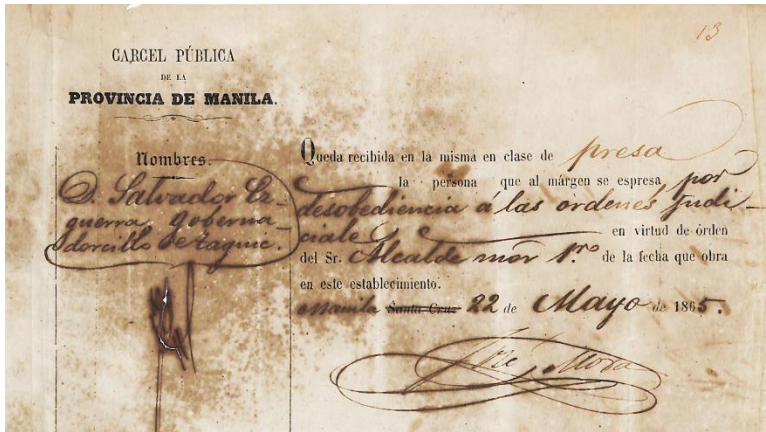 13
CARCEL PÚBLICA
DE LA
PROVINCIA DE MANILA.
Nombres.
D. Salvador Es-
guerra goberna-
dorcillo de Taguic.
Queda recibida en la misma en clase de presa
la persona que al márgen se espresa por
desobediencia á las ordenes Judi-
ciale en virtud de órden
del Sr. Alcalde mor 1.ro de la fecha que obra
en este establecimiento.
Manila Santa Cruz 22 de Mayo de 1865.
Mora